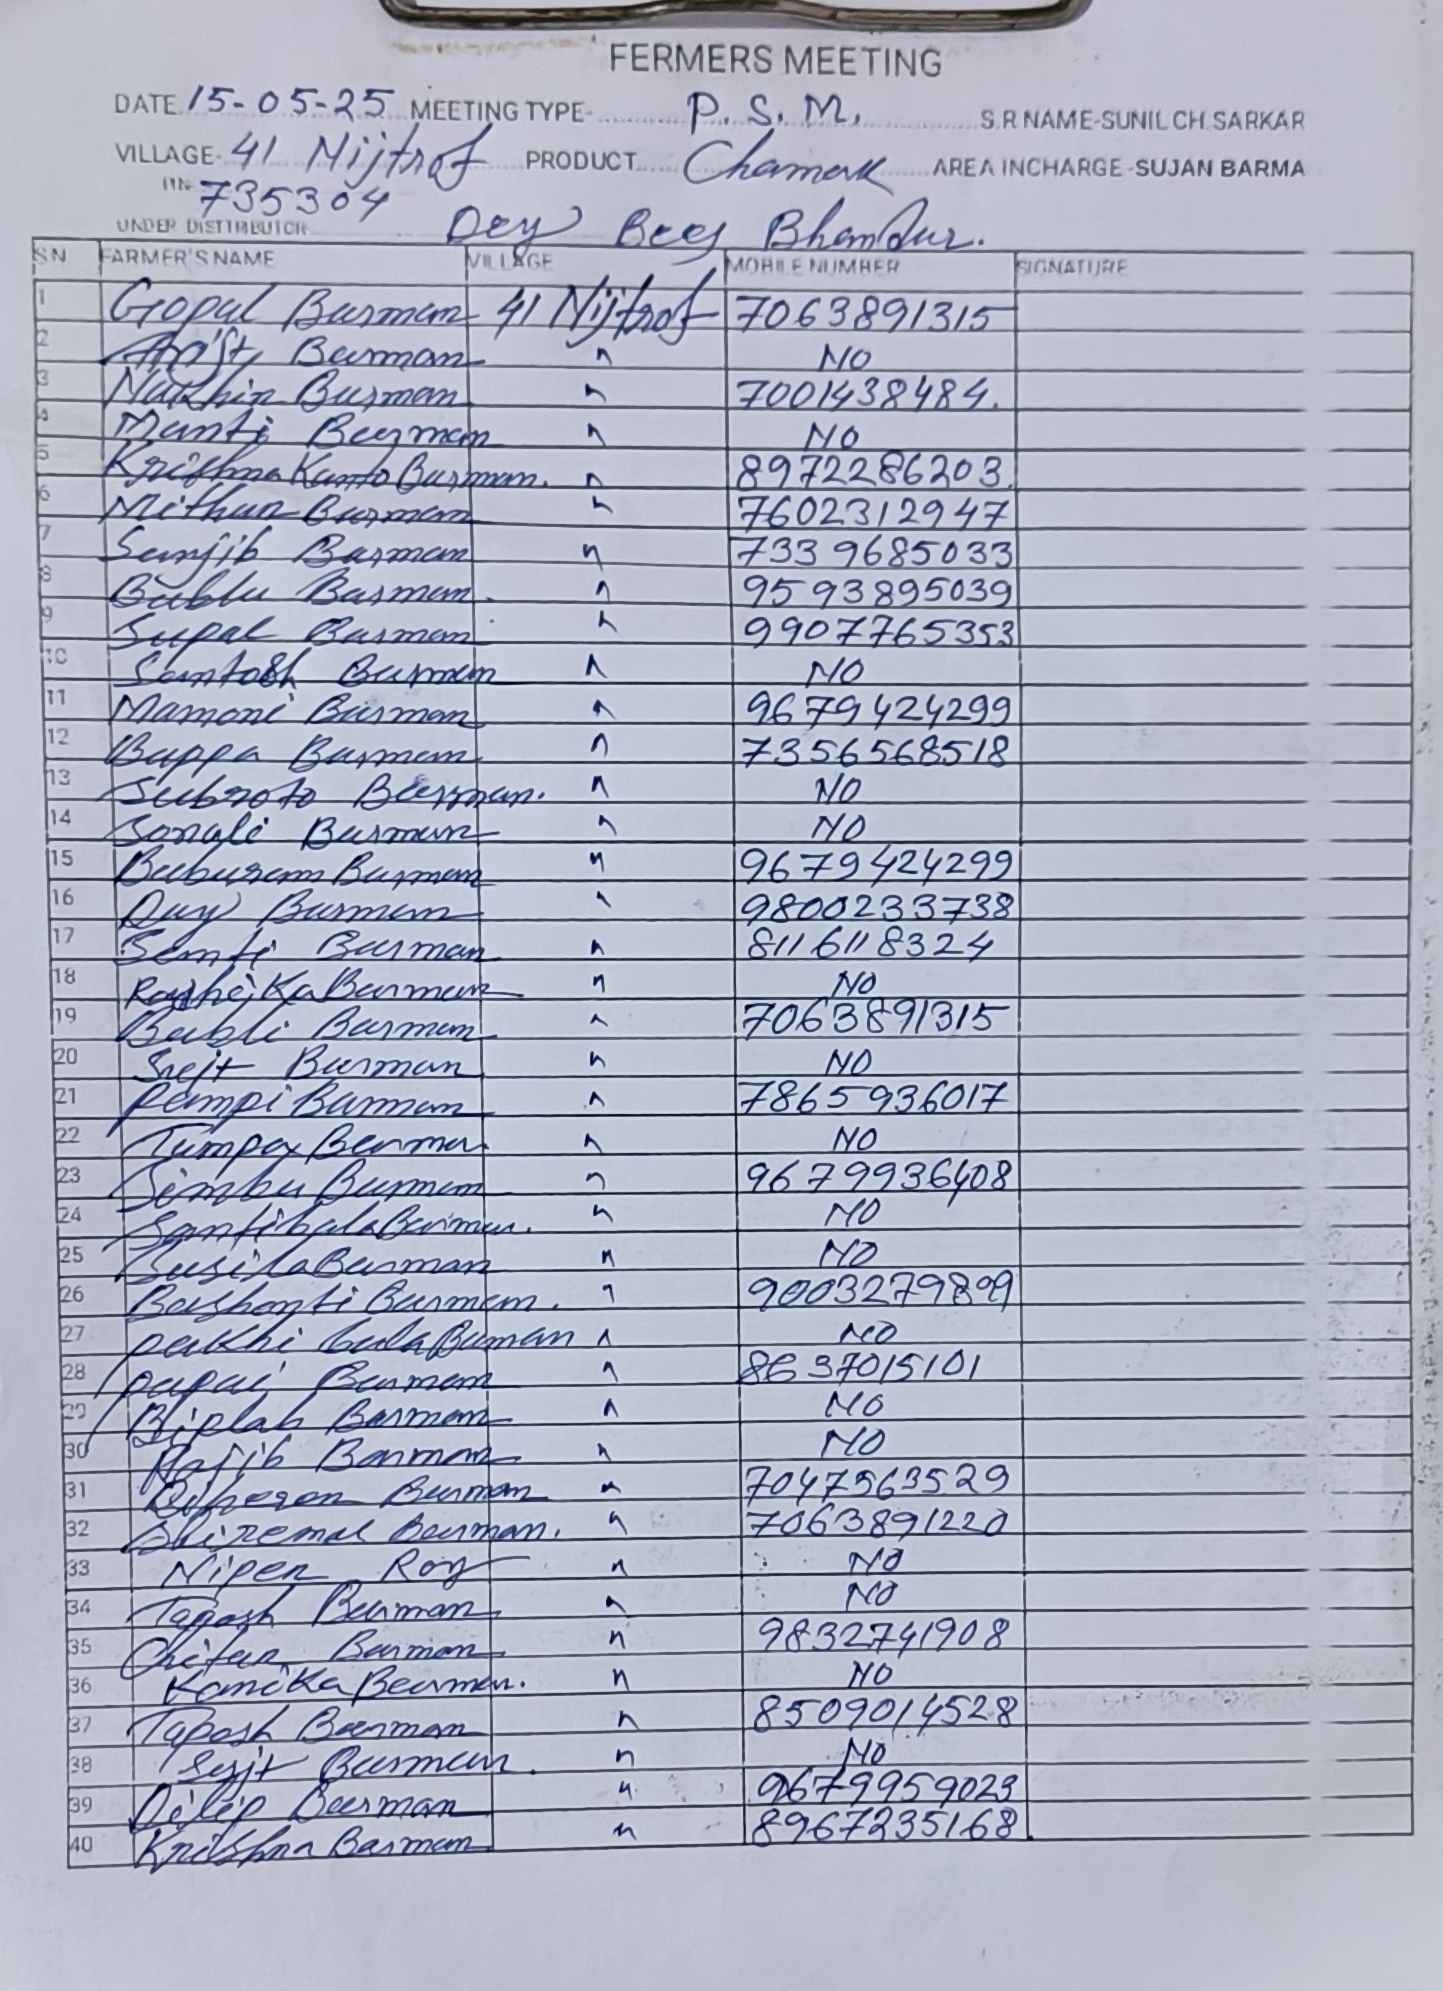 FERMERS MEETING
DATE 15-05-25 MEETING TYPE- P. S. M. S.R NAME-SUNIL CH.SARKAR
VILLAGE- 41 Nijtrof PRODUCT Chamark AREA INCHARGE-SUJAN BARMA
PIN- 735304
UNDER DISTTRIBUTOR Dey Beej Bhandar.
SN FARMER'S NAME VILLAGE MOBILE NUMBER SIGNATURE
1 Gopal Burman 41 Nijtrof 7063891315
2 Burman " NO
3 Nakhin Burman " 7001438484.
4 Manti Burman " NO
5 Krishna Kanto Burman. " 8972286203.
6 Mithun Burman " 7602312947
7 Sanjib Barman " 7339685033
8 Bablu Barman. " 9593895039
9 Supal Burman " 9907765353
10 Santosh Burman " NO
11 Mamoni Burman " 9679424299
12 Bappa Burman " 7356568518
13 Subroto Burman. " NO
14 Sonali Burman " NO
15 Baburam Burman " 9679424299
16 Burman " 9800233738
17 Burman " 8116118324
18 Burman " NO
19 Babli Burman " 7063891315
20 Burman " NO
21 Pampi Burman " 7865936017
22 Tumpa Barman. " NO
23 Burman " 9679936408
24 Santibala Barman. " NO
25 Susila Burman " NO
26 Bashonti Burman. " 9003279899
27 pakhi bala Burman " NO
28 papai Burman " 8637015101
29 Biplab Barman " NO
30 Rajib Barman " NO
31 Burman " 7047563529
32 Burman. " 7063891220
33 Nipen Roy " NO
34 Taposh Burman " NO
35 Burman " 9832741908
36 Konika Barman. " NO
37 Taposh Barman " 8509014528
38 Burman. " NO
39 Dilip Barman " 9679959023
40 Krishna Barman " 8967235168